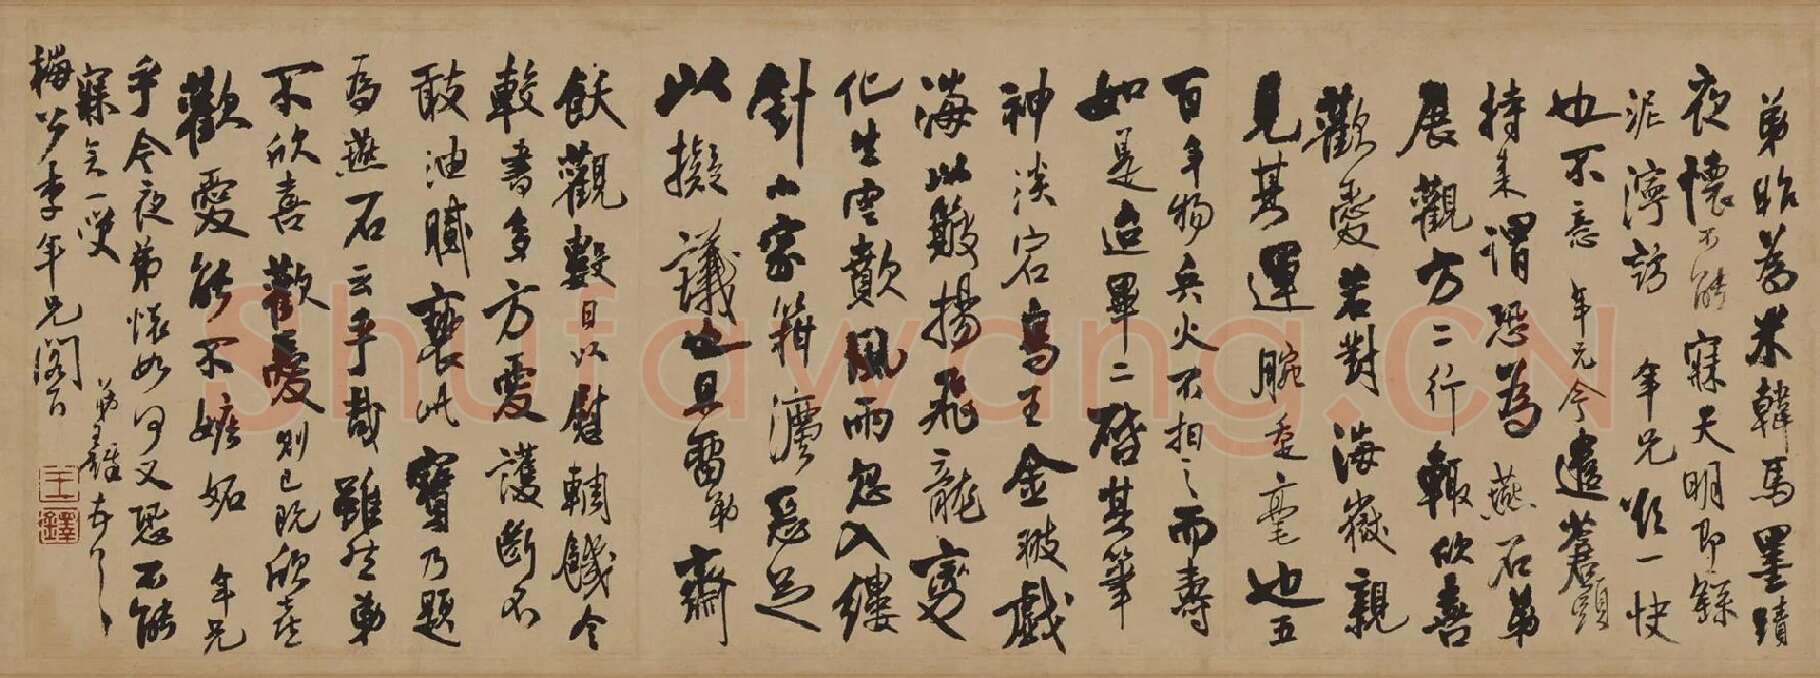 弟昨為米韓馬墨蹟
夜懷不能寐天明即踩
泥濘訪年兄欲一快
也不意年兄今遣蒼頭
持來謂恐為燕石弟
展觀方二行輒欣喜
歡愛若對海嶽親
見其運腕委毫也五
百年物兵火不相之而壽
如是迨畢二啓其筆
神淡宕鳥王金翅戲
海以簸揚飛龍變
化生雲歕風雨忽入縷
針小家籍濡惡足
此擬議也且留弟齋
飫觀數日以慰輖饑今
較書多方愛護斷不
敢油膩褻此寶乃題
為燕石云乎哉雖然弟
不欣喜歡愛則已既欣喜
歡愛能不嫉妬年兄
乎今夜弟懷如何又恐不能
寐矣一笑
梅公李年兄閣下
弟王鐸
王
鐸
Shufawang.CN